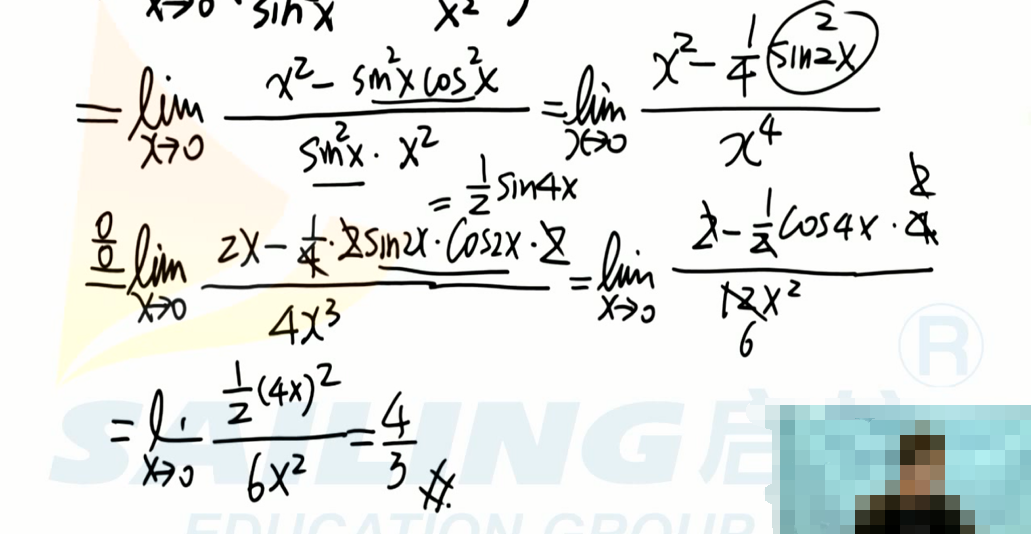 x→0 sin²x x² )
= lim x→0 (x² - sin²x cos²x)/(sin²x · x²) = lim x→0 (x² - 1/4 sin²2x)/x⁴
= 1/2 sin4x
0/0 = lim x→0 (2x - 1/4 · 2sin2x · cos2x · 2)/(4x³) = lim x→0 (2 - 1/2 cos4x · 4 2)/(12x² 6)
= li x→0 (1/2 (4x)²)/(6x²) = 4/3 #.
SAILING 启航 ®
EDUCATION GROUP